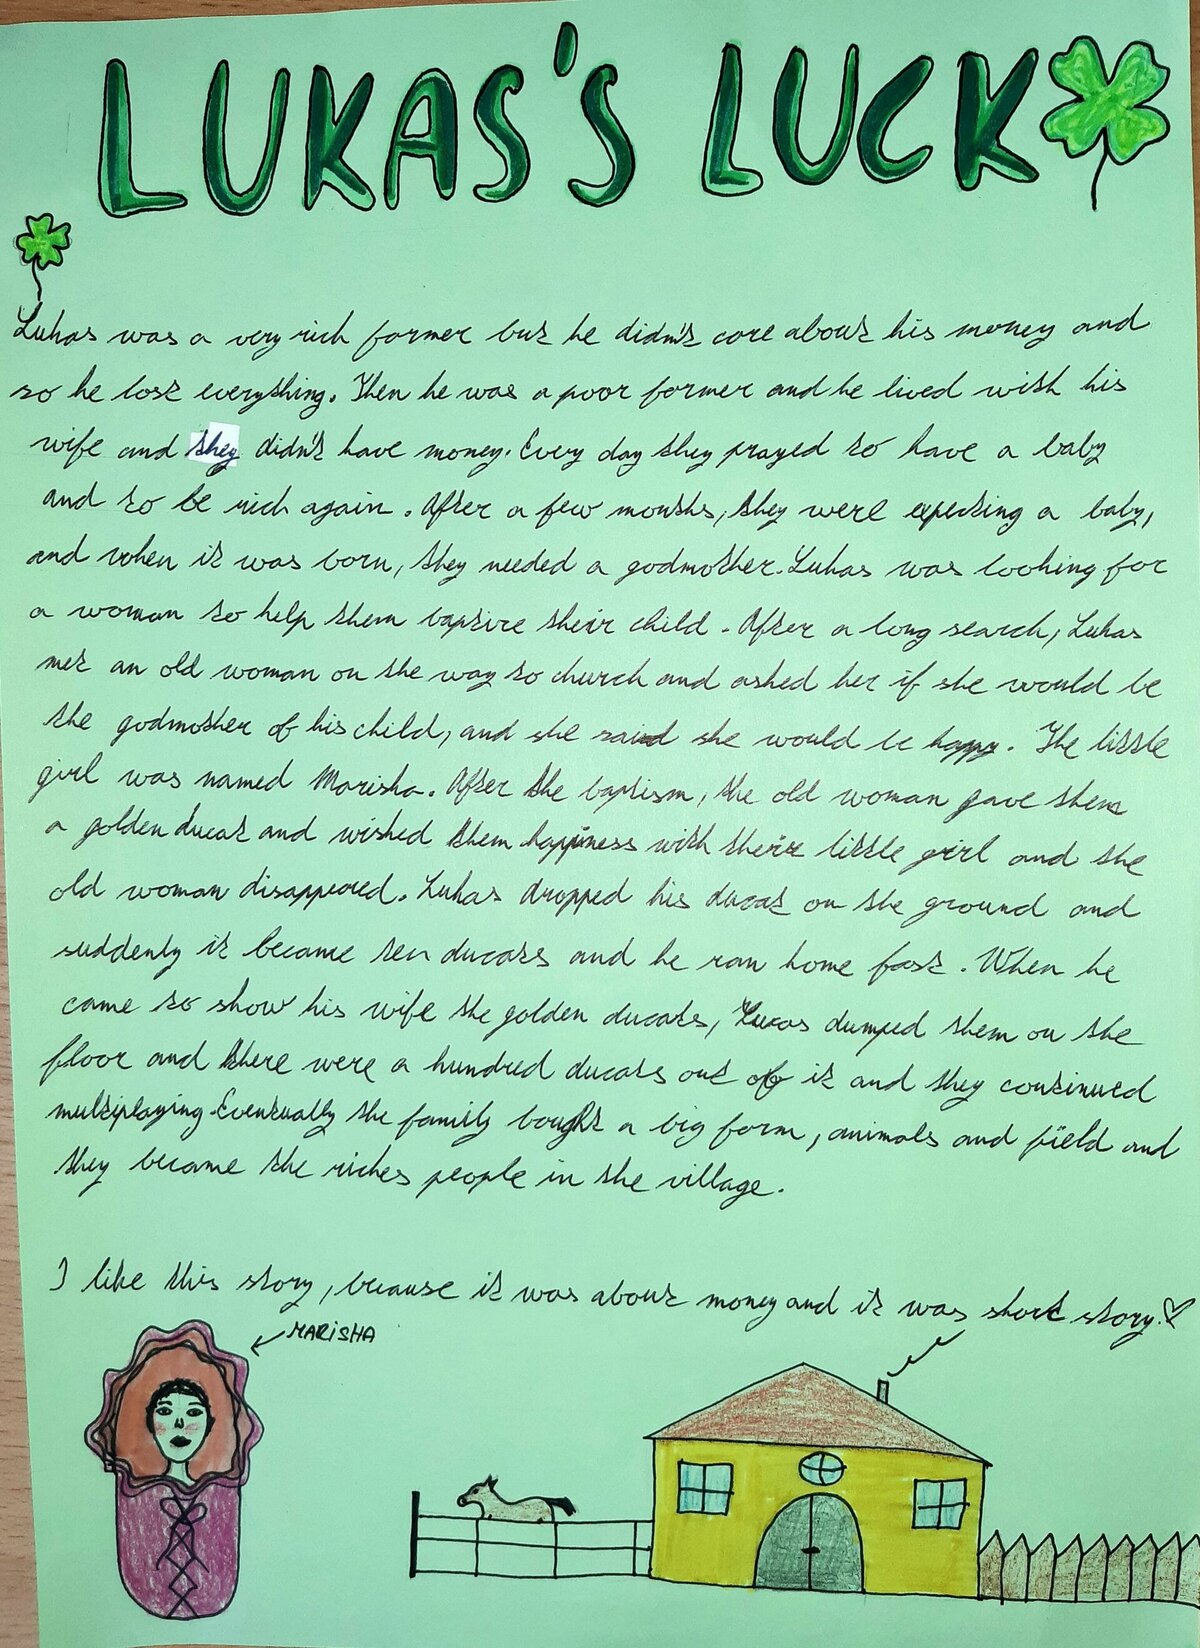 LUKAS'S LUCK
Lukas was a very rich farmer but he didn't care about his money and
so he lost everything. Then he was a poor farmer and he lived with his
wife and they didn't have money. Every day they prayed to have a baby
and to be rich again. After a few months, they were expecting a baby,
and when it was born, they needed a godmother. Lukas was looking for
a woman to help them baptize their child. After a long search, Lukas
met an old woman on the way to church and asked her if she would be
the godmother of his child, and she said she would be happy. The little
girl was named Marisha. After the baptism, the old woman gave them
a golden ducat and wished them happiness with their little girl and the
old woman disappeared. Lukas dropped his ducat on the ground and
suddenly it became ten ducats and he ran home fast. When he
came to show his wife the golden ducats, Lucas dumped them on the
floor and there were a hundred ducats out of it and they continued
multiplaying. Eventually the family bought a big farm, animals and field and
they became the riches people in the village.
I like this story, because it was about money and it was short story.♡
MARISHA